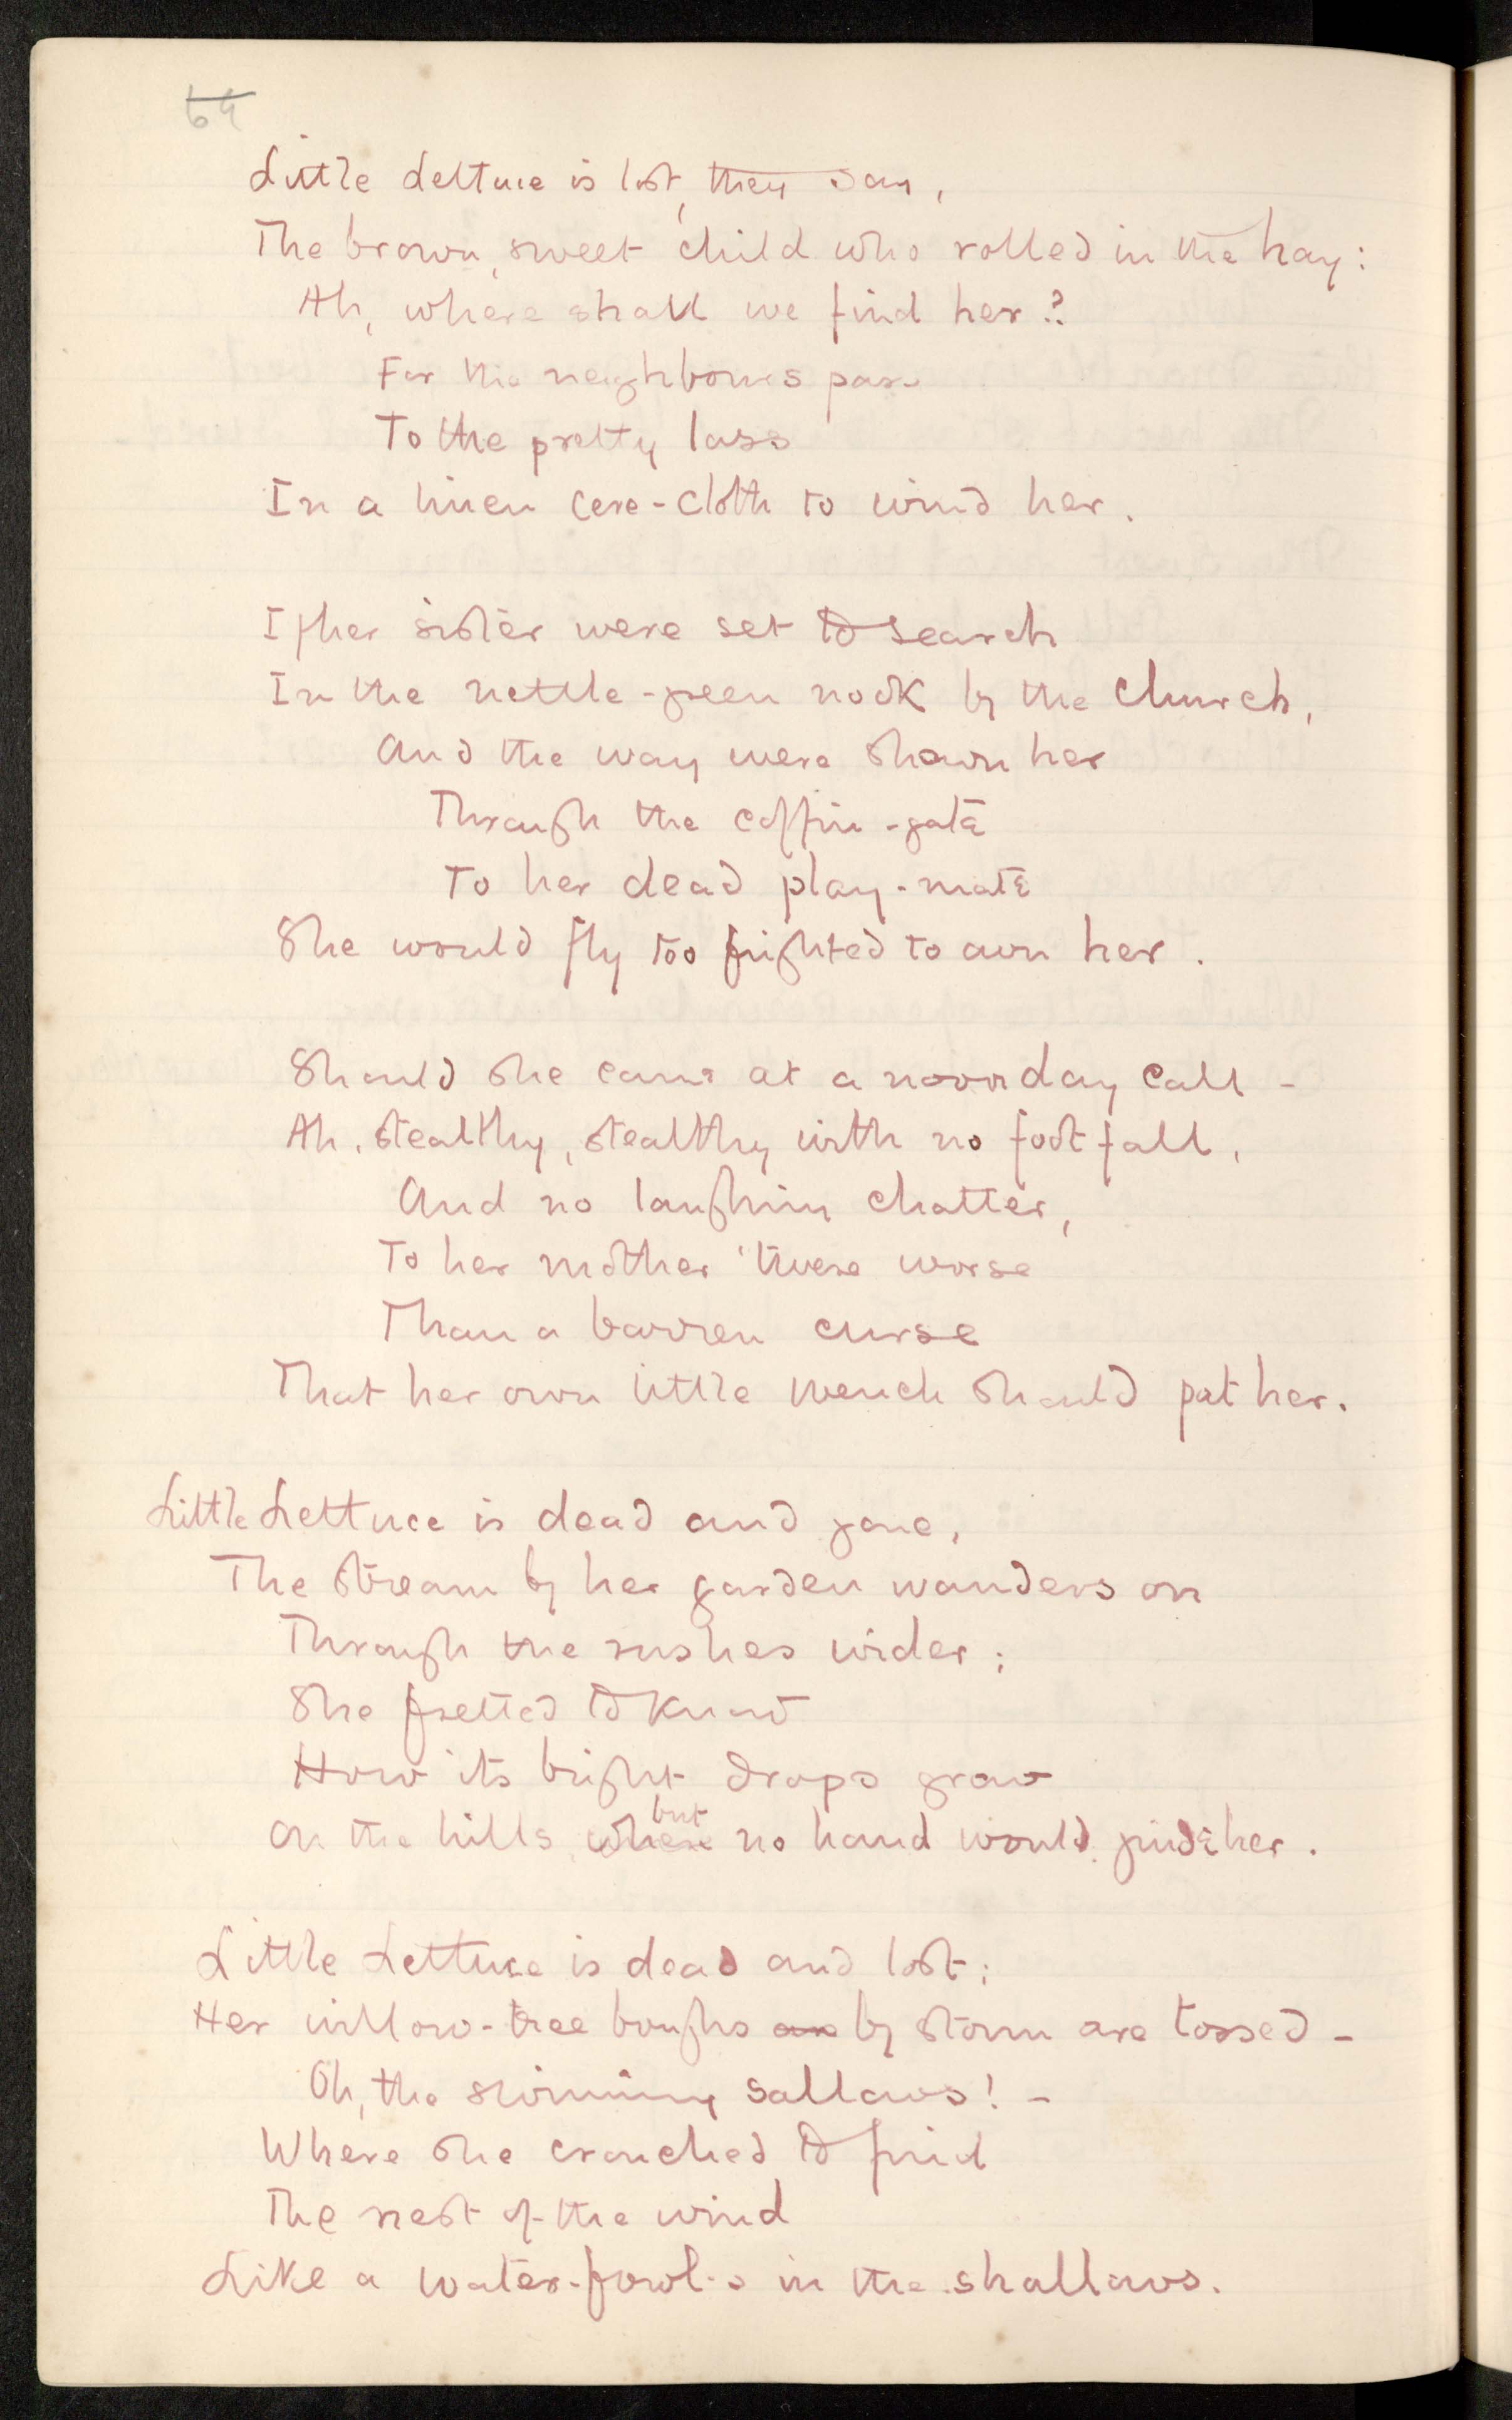 64
Little Lettuce is lost, they say,
The brown, sweet child who rolled in the hay:
Ah, where shall we find her?
For the neighbours pass
To the pretty lass
In a linen cere-cloth to wind her.
If her sister were set to search
In the nettle-green nook by the church,
And the way were shown her
Through the coffin-gate
To her dead play-mate
She would fly too frighted to own her.
Should she come at a noonday call -
Ah, stealthy, stealthy with no footfall,
And no laughing chatter,
To her mother 'twere worse
Than a barren curse
That her own little wench should pat her.
Little Lettuce is dead and gone,
The stream by her garden wanders on
Through the rushes wider;
She fretted to know
How its bright drops grow
On the hills, where but no hand would guide her.
Little Lettuce is dead and lost;
Her willow-tree boughs are by storm are tossed -
Oh, the swimming sallows! -
Where she crouched to find
The nest of the wind
Like a water-fowl's in the shallows.